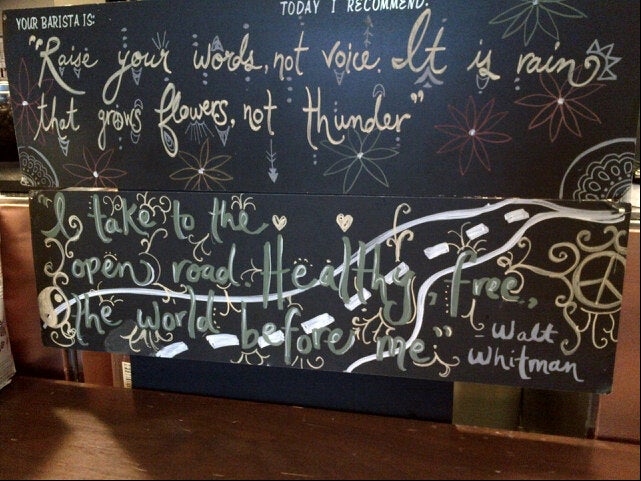 YOUR BARISTA IS: TODAY I RECOMMEND:
"Raise your words, not voice. It is rain
that grows flowers, not thunder"
"I take to the
open road. Healthy, free,
the world before me."
- Walt
Whitman